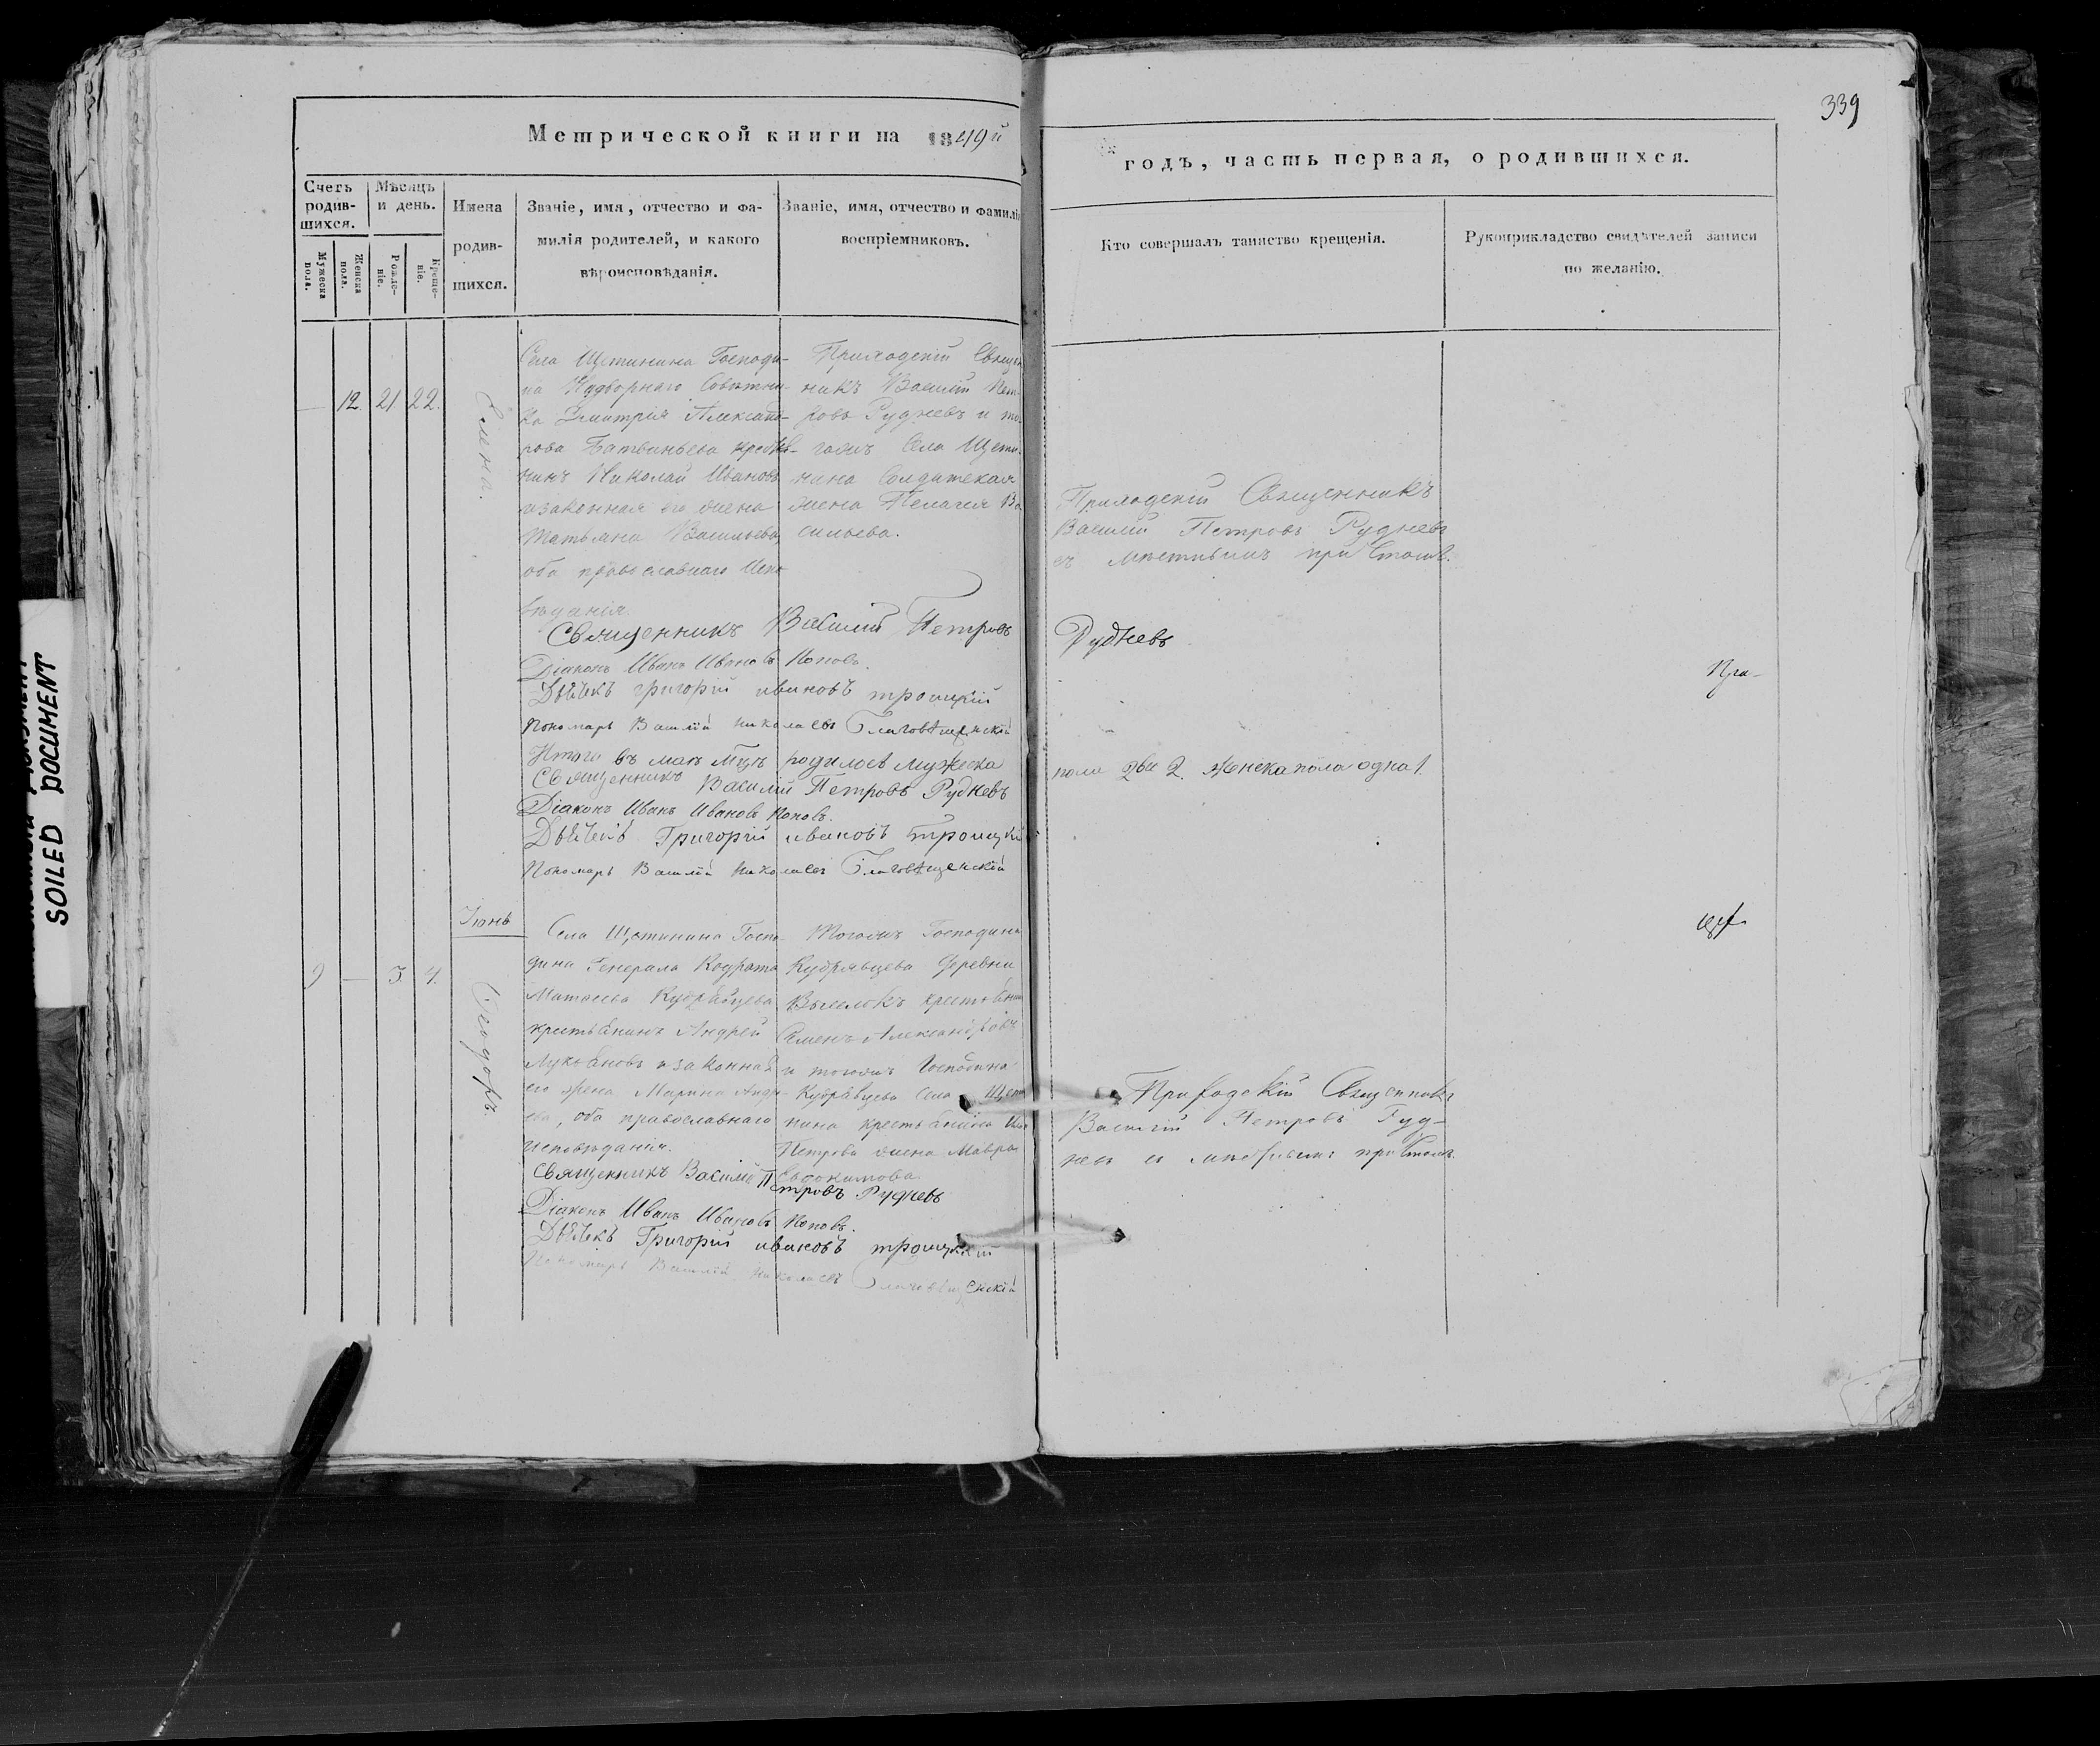 339
Метрической книги на 1849й
годъ, часть первая, о родившихся.
Счетъ родив-шихся.
Мѣсяцъ и день.
Имена родив-шихся.
Званіе, имя, отчество и фа-
милія родителей, и какого
вѣроисповѣданія.
Званіе, имя, отчество и фамилі
воспріемниковъ.
Кто совершалъ таинство крещенія.
Рукоприкладство свидѣтелей записи
по желанію.
Мужеска пола.
Женска пола.
Рожде-ніе.
Креще-ніе.
— 12. 21 22.
Елена.
Села Щетинина Господи-
на Надворнаго Совѣтни-
ка Дмитрія Александ-
рова Батвиньева крестья-
нинъ Николай Ивановъ
изаконная его жена
Татьяна Васильева,
оба православнаго Испо
вѣданія.
Приходскій Священ
никъ Василій Пет-
ровъ Рудневъ и то
гожъ Села Щети-
нина Солдатская
жена Пелагія Ва
сильева.
Приходскій Священникъ
Василій Петровъ Рудневъ
съ мѣстнымъ причтомъ.
Священникъ Василій Петровъ Рудневъ
Діаконъ Иванъ Ивановъ Поповъ.
Дьячекъ григорій ивановъ троицкій
Пономарь Василій николаевъ Благовѣщенскій
При-
Итого въ маѣ мцѣ родилось мужеска пола два 2. женска пола одна 1.
Священникъ Василий Петровъ Рудневъ
Діаконъ Иванъ Ивановъ Поповъ.
Дьячекъ Григорій ивановъ троицкій
Пономарь Василій николаевъ Благовѣщенскій
Іюнь
9 — 3. 4.
Ѳеодоръ.
Села Щетинина Госпо-
дина Генерала Кодрата
Матвеева Кудрявцева
крестьянинъ Андрей
Лукьяновъ изаконная
его жена Марина
оба православнаго
исповѣданія.
Тогожъ Господина
Кудрявцева Деревни
Выселокъ крестьянинъ
Семенъ Александровъ
и тогожъ Господина
Кудрявцева Села Щети
нина крестьянина
Петрова жена Мавра
Евдокимова.
Приходскій Священникъ
Василій Петровъ Руд-
невъ съ мѣстнымъ причтомъ.
Священникъ Василій Петровъ Рудневъ
Діаконъ Иванъ Ивановъ Поповъ.
Дьячекъ Григорій ивановъ троицкій
Пономарь Василій николаевъ Благовѣщенскій
SOILED DOCUMENT